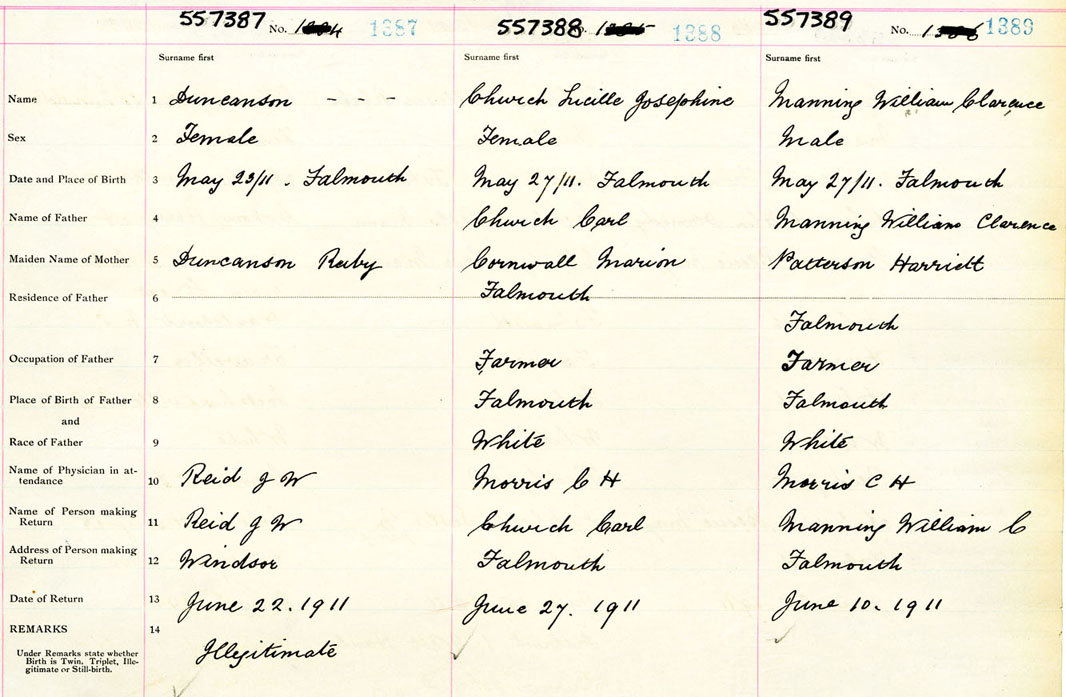 557387 No. 1387 557388 1388 557389 No. 1389
Surname first Surname first Surname first
Name 1 Duncanson - - - Church Lucille Josephine Manning William Clarence
Sex 2 Female Female Male
Date and Place of Birth 3 May 23/11. Falmouth May 27/11. Falmouth May 27/11. Falmouth
Name of Father 4 Church Carl Manning William Clarence
Maiden Name of Mother 5 Duncanson Ruby Cornwall Marion Patterson Harriett
Residence of Father 6 Falmouth
Falmouth
Occupation of Father 7 Farmer Farmer
Place of Birth of Father 8 Falmouth Falmouth
and
Race of Father 9 White White
Name of Physician in at-
tendance 10 Reid J W Morris C H Morris C H
Name of Person making
Return 11 Reid J W Church Carl Manning William C
Address of Person making
Return 12 Windsor Falmouth Falmouth
Date of Return 13 June 22. 1911 June 27. 1911 June 10. 1911
REMARKS 14
Illegitimate
Under Remarks state whether
Birth is Twin, Triplet, Ille-
gitimate or Still-birth.